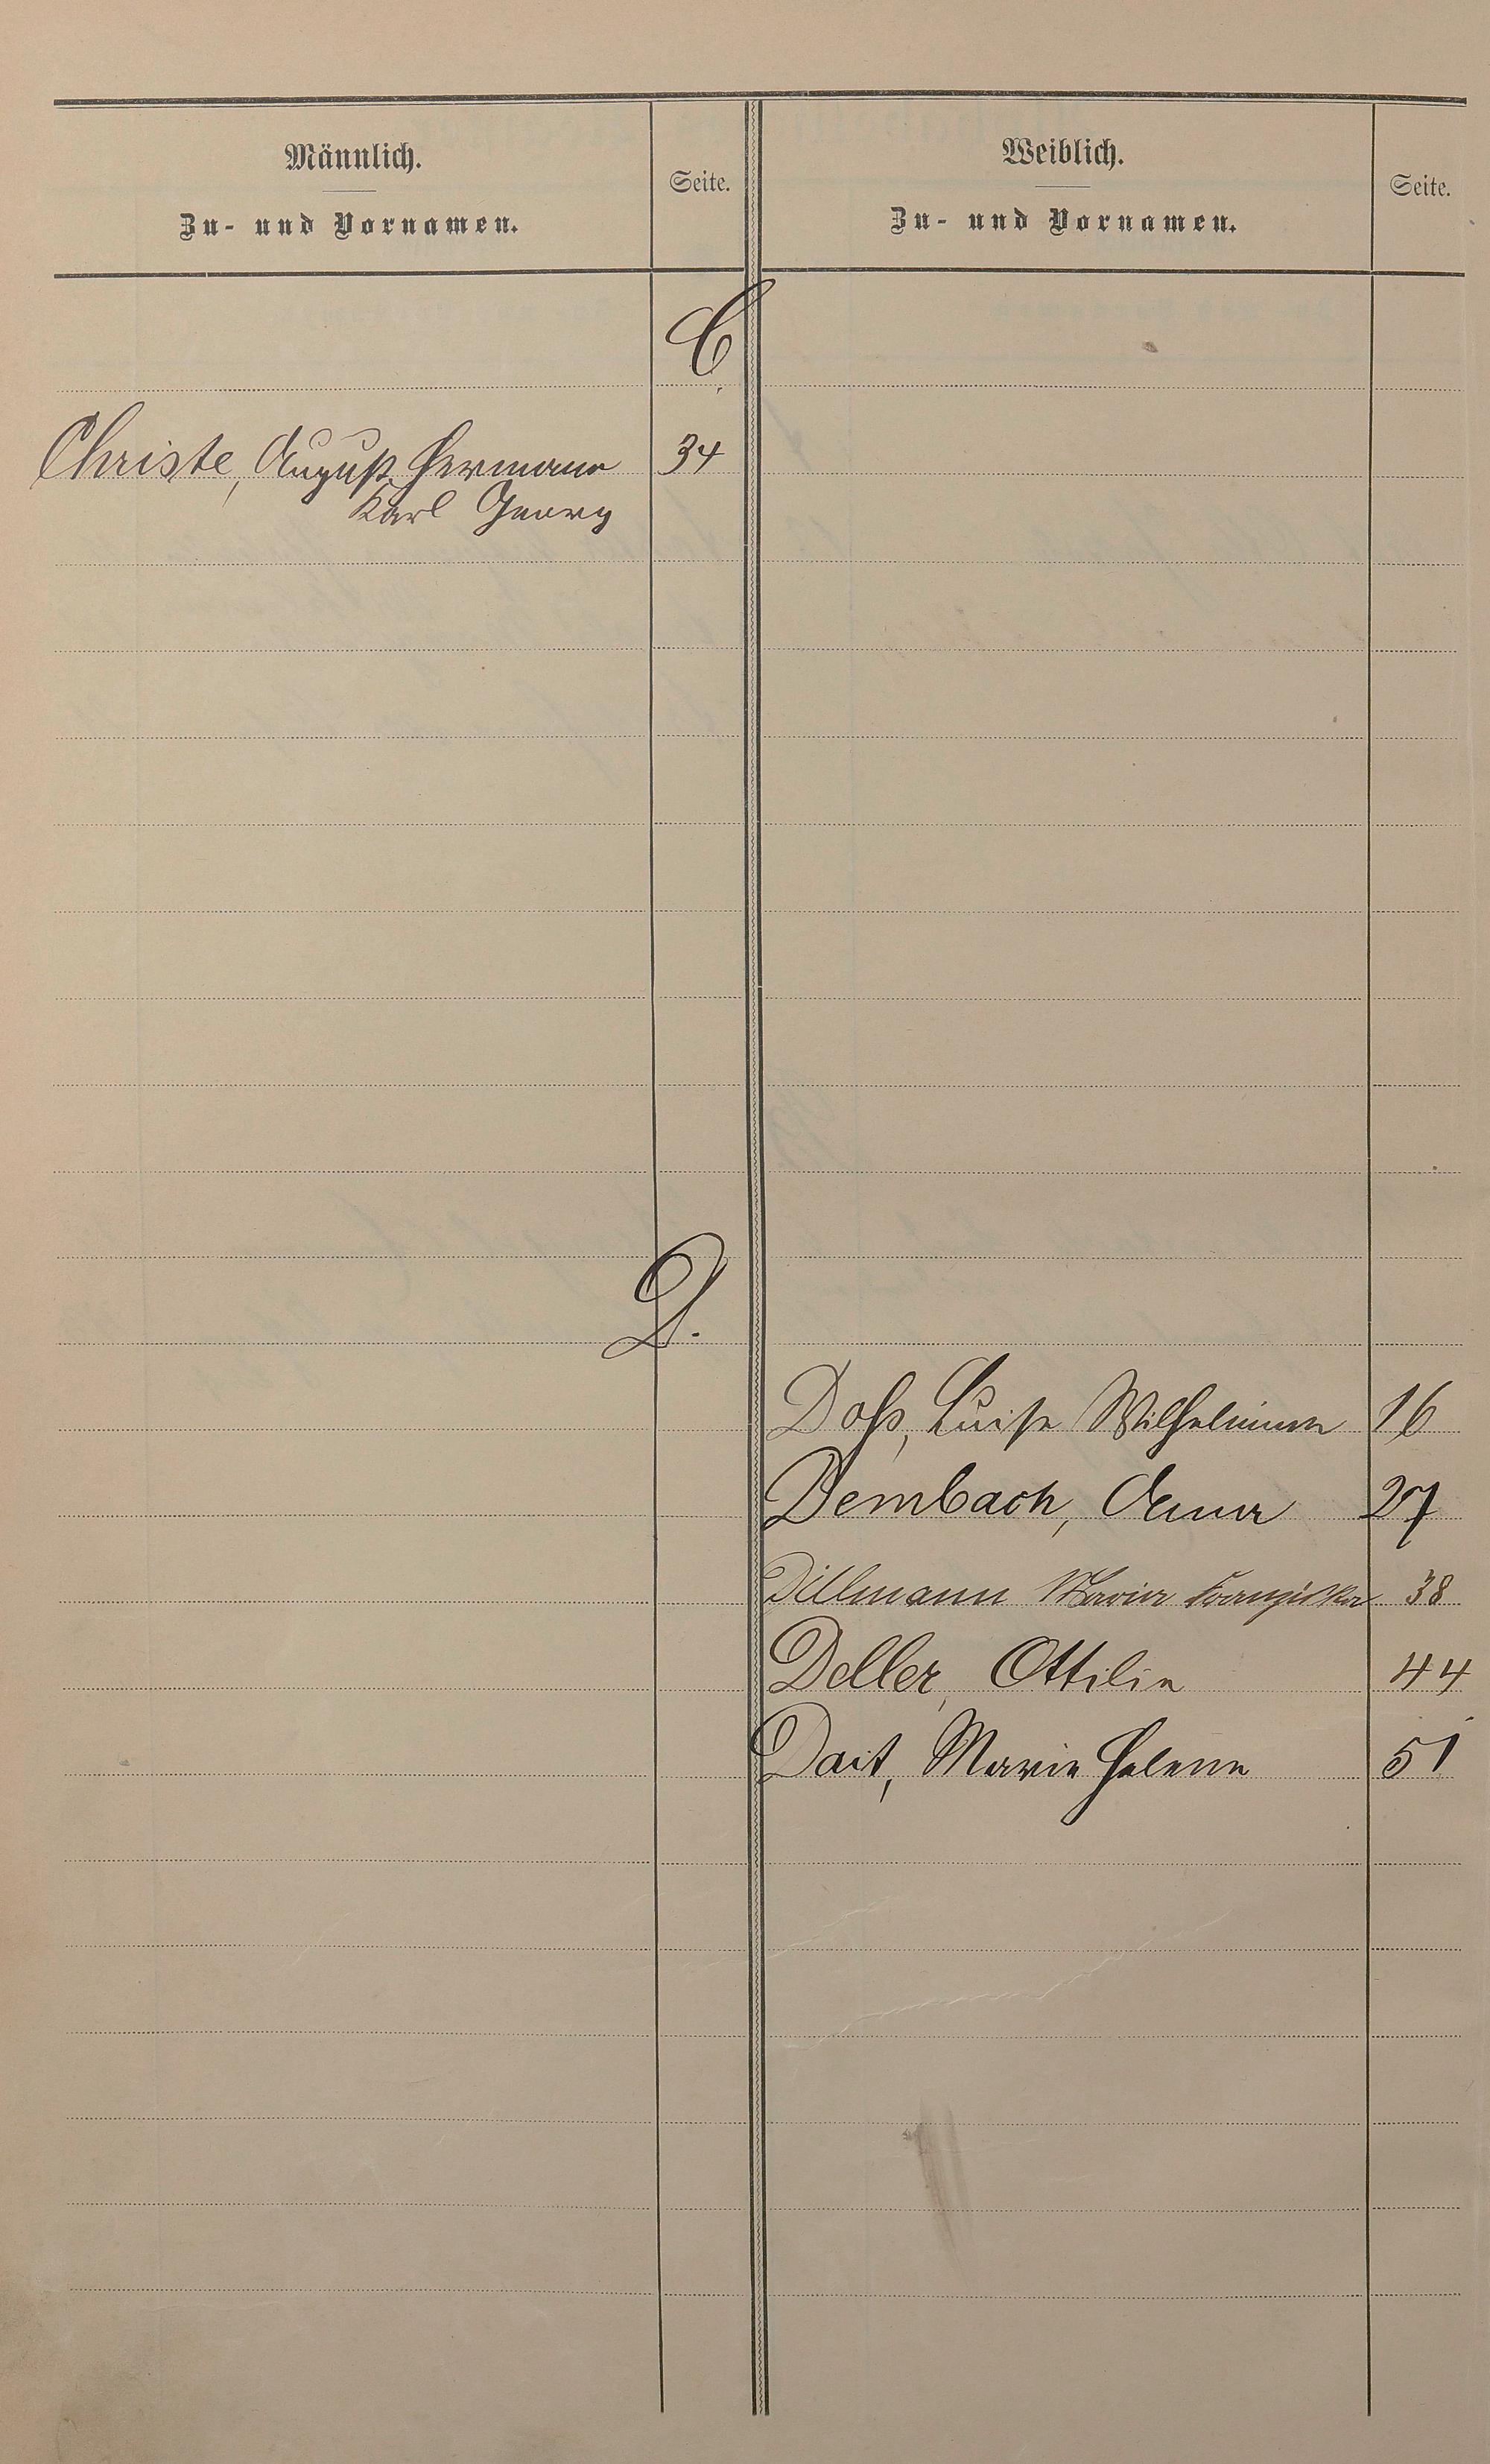 Männlich.
Zu- und Vornamen.
Seite.
Weiblich.
Zu- und Vornamen.
Seite.
C
Christe, August Hermann 34
Karl Georg
D.
Doß, Luise Wilhelmine 16
Dembach, Anna 27
Dillmann Maria Franziska 38
Deller, Ottilie 44
Dait, Marie Helene 51